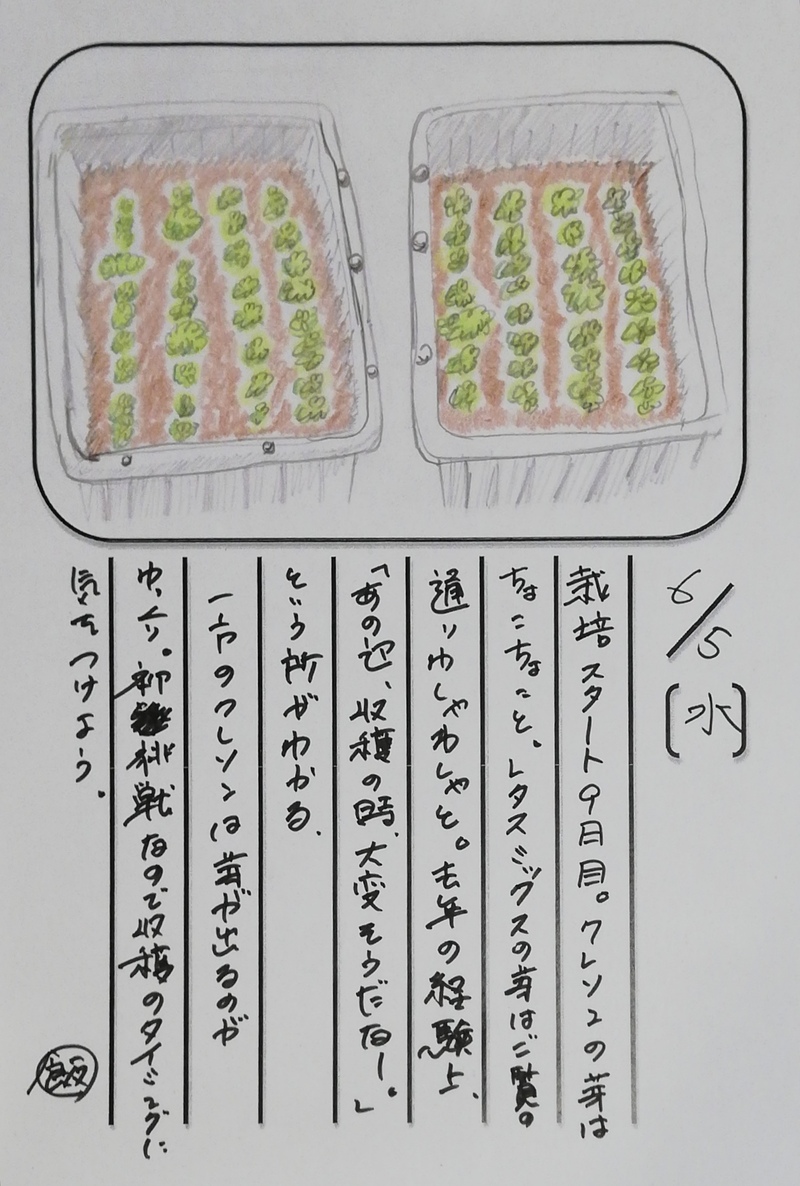 6/5
[水]
栽培スタート9日目。クレソンの芽は
ちょこちょこと。レタスミックスの芽はご覧の
通りわしゃわしゃと。去年の経験上、
「あの辺、収穫の時、大変そうだなー。」
という所がわかる。
一方のクレソンは芽が出るのが
ゆっくり。初挑戦なので収穫のタイミングに
気をつけよう。
飯